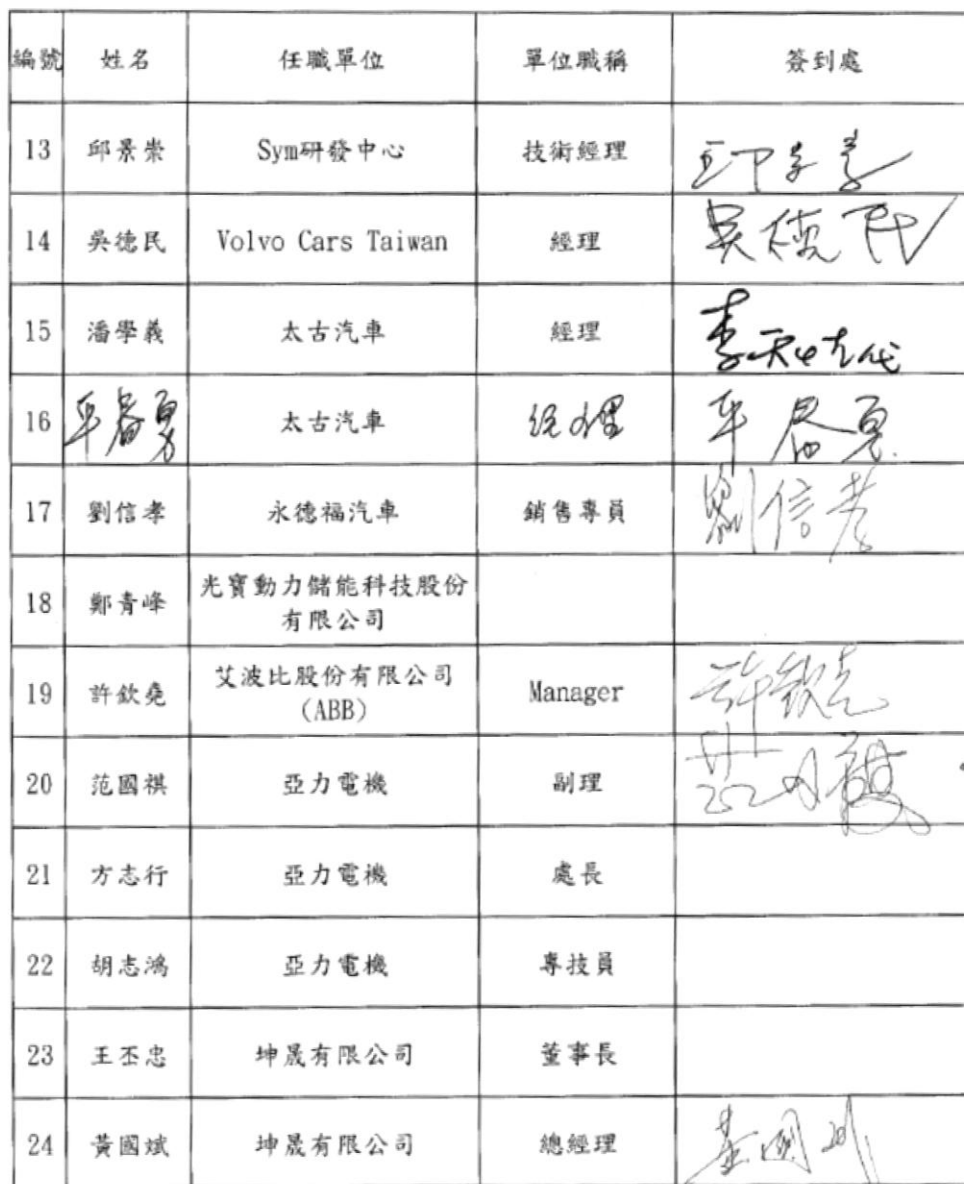 編號 姓名 任職單位 單位職稱 簽到處
13 邱景崇 Sym研發中心 技術經理
14 吳德民 Volvo Cars Taiwan 經理 吳德民
15 潘學義 太古汽車 經理
16 太古汽車 經理
17 劉信孝 永德福汽車 銷售專員 劉信孝
18 鄭青峰 光寶動力儲能科技股份
有限公司
19 許欽堯 艾波比股份有限公司
(ABB) Manager 許欽堯
20 范國祺 亞力電機 副理 范國祺
21 方志行 亞力電機 處長
22 胡志鴻 亞力電機 專技員
23 王丕忠 坤晟有限公司 董事長
24 黃國斌 坤晟有限公司 總經理 黃國斌